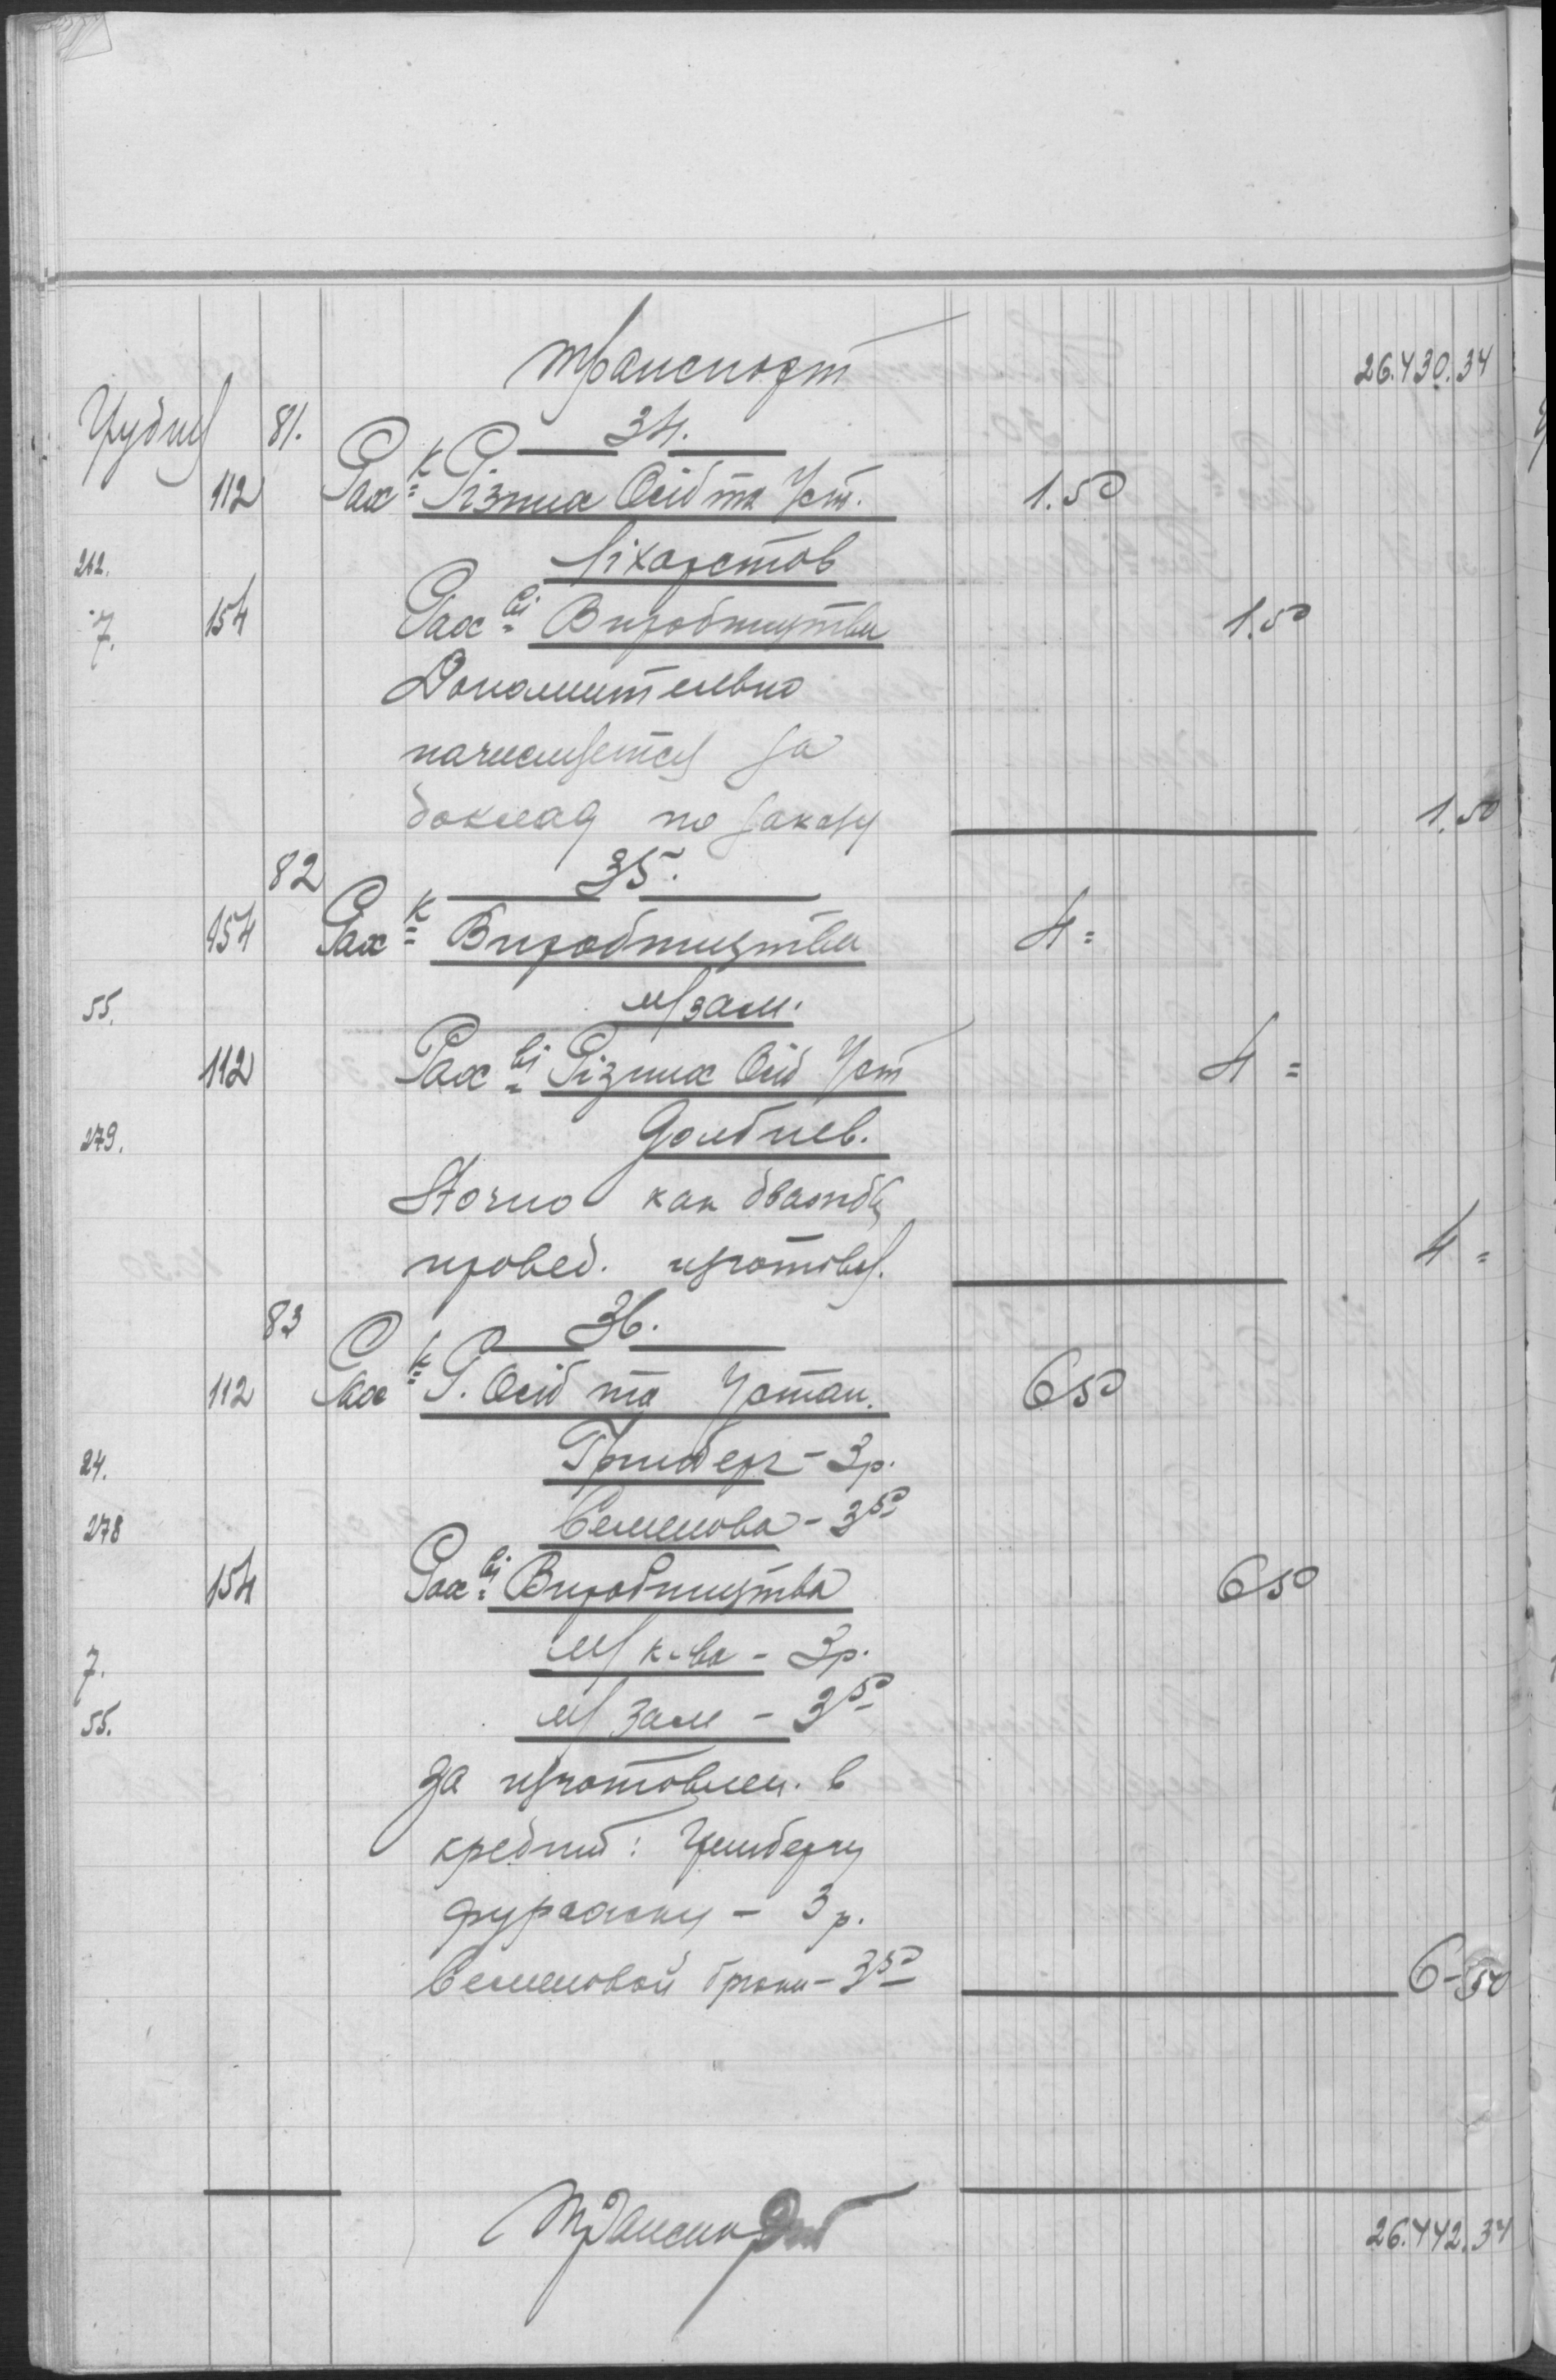 транспорт 26.430.34
Грудня 81. 34.
112 Рах-к Різних Осіб та Уст. 1.50
262. Ліхарстов
7. 154 Рах-ві Виробництва 1.50
Дополнительно
начисляется за
доклад по заказу 1.50
82 35.
154 Рах-к Виробництва 4=
55. м/зам.
112 Рах-ві Різних Осіб Уст 4=
279. Долбнев.
Storno как дважды
провед. изготовл. 4=
83 36.
112 Рах-к Р. Осіб та Устан. 6 50
24. Гринберг - 3р.
278 Семенова - 3 50
154 Рах-ві Виробництва 6 50
7. м/к-ва - 3р.
55. м/зам - 3 50
За изготовлен. в
кредит: Гринбергу
фуражку - 3р.
Семеновой брюки - 3 50 6-50
Транспорт 26.442.34